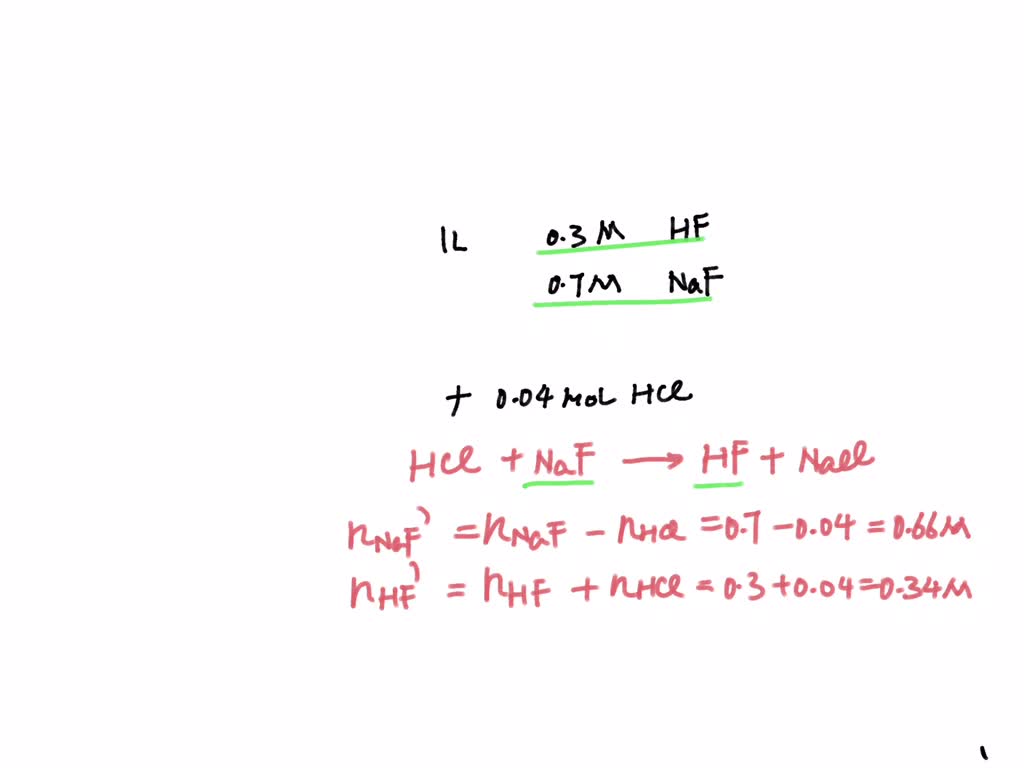 1L 0.3 M HF
0.7 M NaF
+ 0.04 mol HCl
HCl + NaF → HF + NaCl
nNaF' = nNaF - nHCl = 0.7 - 0.04 = 0.66M
nHF' = nHF + nHCl = 0.3 + 0.04 = 0.34M
1